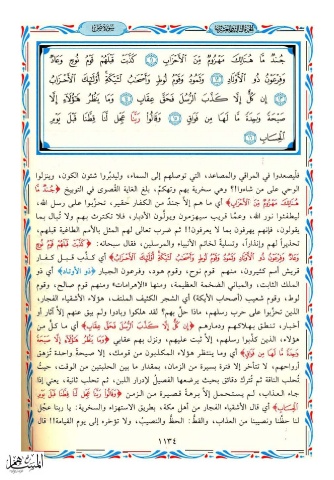 سورة ص
جُندٌ مَّا هُنَالِكَ مَهْزُومٌ مِّنَ الْأَحْزَابِ ۝ كَذَّبَتْ قَبْلَهُمْ قَوْمُ نُوحٍ وَعَادٌ
وَفِرْعَوْنُ ذُو الْأَوْتَادِ ۝ وَثَمُودُ وَقَوْمُ لُوطٍ وَأَصْحَابُ لْئَيْكَةِ أُولَٰئِكَ الْأَحْزَابُ
۝ إِن كُلٌّ إِلَّا كَذَّبَ الرُّسُلَ فَحَقَّ عِقَابِ ۝ وَمَا يَنظُرُ هَٰؤُلَاءِ إِلَّا
صَيْحَةً وَاحِدَةً مَّا لَهَا مِن فَوَاقٍ ۝ وَقَالُوا رَبَّنَا عَجِّل لَّنَا قِطَّنَا قَبْلَ يَوْمِ
الْحِسَابِ ۝
فليصعدوا في المراقي والمصاعد، التي توصلهم إلى السماء، وليدبّروا شئون الكون، وينزلوا
الوحي على من شاءوا!؟ وهي سخرية بهم وتهكّم، بلغ الغاية القُصوى في التوبيخ ﴿جُندٌ مَّا
هُنَالِكَ مَهْزُومٌ مِّنَ الْأَحْزَابِ﴾ أي ما هم إلّا جندٌ من الكفار حقير، تحزّبوا على رسل الله،
ليطفئوا نور الله، وعمّا قريب سيهزمون ويولّون الأدبار، فلا تكترث بهم ولا تُبال بما
يقولون، فإنهم يهرفون بما لا يعرفون!! ثم ضرب تعالى لهم المثل بالأمم الطاغية قبلهم،
تحذيراً لهم وإنذاراً، وتسليةً لخاتم الأنبياء والمرسلين، فقال سبحانه: ﴿كَذَّبَتْ قَبْلَهُمْ قَوْمُ نُوحٍ
وَعَادٌ وَفِرْعَوْنُ ذُو الْأَوْتَادِ وَثَمُودُ وَقَوْمُ لُوطٍ وَأَصْحَابُ لْئَيْكَةِ أُولَٰئِكَ الْأَحْزَابُ﴾ أي كذّب قبل كفار
قريش أمم كثيرون، منهم قوم نوح، وقوم هود، وفرعون الجبار ﴿ذو الأوتاد﴾ أي ذو
الملك الثابت، والمباني الضخمة العظيمة، ومنها «الإهرامات» ومنهم قوم صالح، وقوم
لوط، وقوم شعيب (أصحاب الأيكة) أي الشجر الكثيف الملتف، هؤلاء الأشقياء الفجار،
الذين تحزّبوا على حرب رسلهم، ماذا حلّ بهم؟ لقد هلكوا وبادوا ولم يبق عنهم إلّا آثار أو
أخبار، تنطق بهلاكهم ودمارهم ﴿إِن كُلٌّ إِلَّا كَذَّبَ الرُّسُلَ فَحَقَّ عِقَابِ﴾ أي ما كلٌّ من
هؤلاء، الذين كذّبوا رسلهم، إلّا ثبت عليهم، ونزل بهم عقابي ﴿وَمَا يَنظُرُ هَٰؤُلَاءِ إِلَّا صَيْحَةً
وَاحِدَةً مَّا لَهَا مِن فَوَاقٍ﴾ أي وما ينتظر هؤلاء المكذبون من قومك، إلا صيحةً واحدة تُزهق
أرواحهم، لا تتأخر إلا فترة يسيرة من الزمان، بمقدار ما بين الحلبتين من الوقت، حيث
تُحلب الناقة ثم تُترك دقائق بحيث يرضعها الفصيل لإدرار اللبن، ثم تحلب ثانية، يعني إذا
جاء العذاب، لم يستحمل إلّا برهة قصيرة من الزمن ﴿وَقَالُوا رَبَّنَا عَجِّل لَّنَا قِطَّنَا قَبْلَ يَوْمِ
الْحِسَابِ﴾ أي قال الأشقياء الفجار من أهل مكة، بطريق الاستهزاء والسخرية: يا ربنا عجّل
لنا حظّنا ونصيبنا من العذاب، والقطّ: الحظّ والنصيبُ، ولا تؤخره إلى يوم القيامة!! قال
١١٣٤